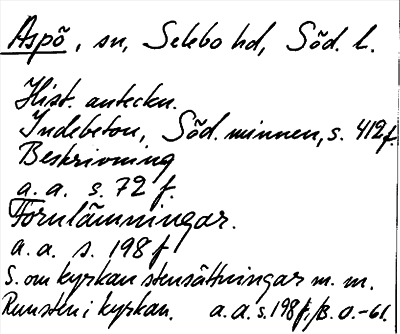 Aspö, sn, Selebo hd, Söd. l.
Hist. anteckn.
Indebetou, Söd. minnen, s. 412 f.
Beskrivning
a. a. s. 72 f.
Fornlämningar.
a. a. s. 198 f
S. om kyrkan stensättningar m. m.
Runsten i kyrkan. a. a. s. 198 f, B. 0.-61.